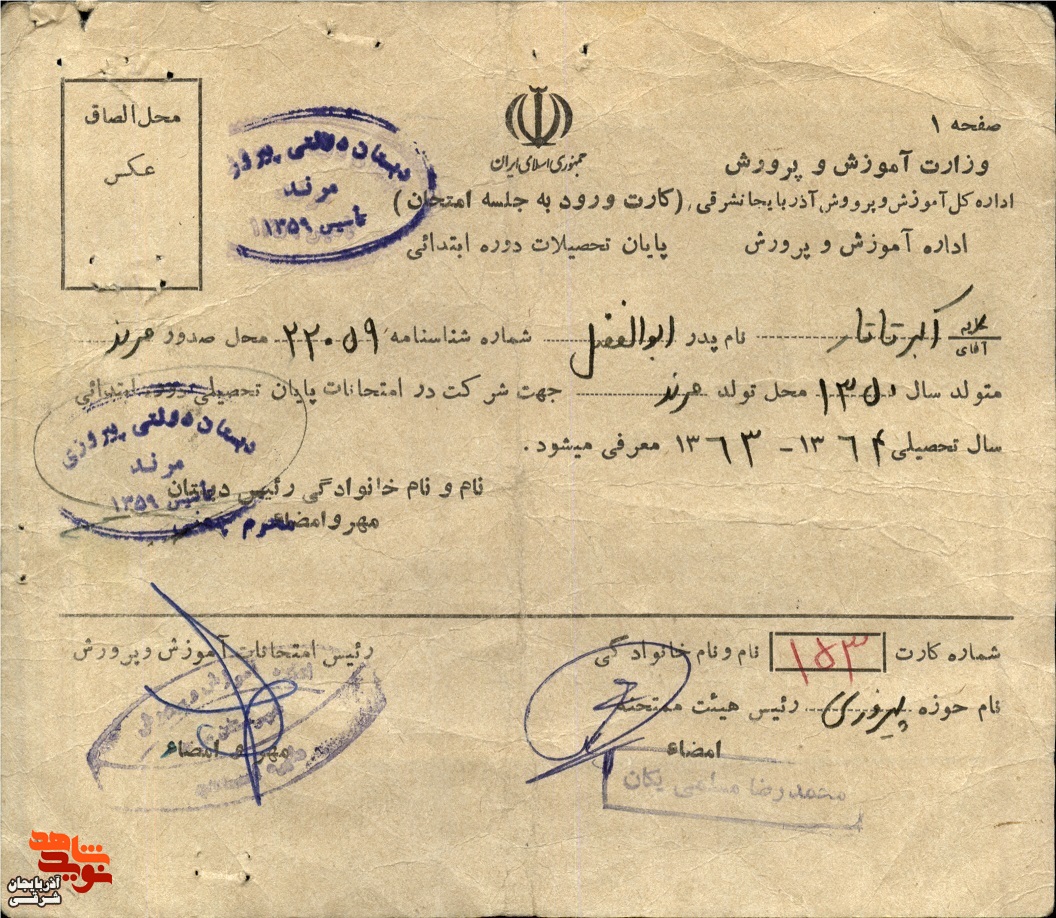 صفحه ۱
جمهوری اسلامی ایران
وزارت آموزش و پرورش
اداره کل آموزش و پرورش آذربایجانشرقی (کارت ورود به جلسه امتحان)
اداره آموزش و پرورش
پایان تحصیلات دوره ابتدائی
محل الصاق
عکس
دبستان دولتی پیروزی
مرند
تأسیس ۱۳۵۹
آقای اکبر تاتار نام پدر ابوالفضل شماره شناسنامه ۲۲۰۵۹ محل صدور مرند
متولد سال ۱۳۵۰ محل تولد مرند جهت شرکت در امتحانات پایان تحصیلی دوره ابتدائی
سال تحصیلی ۱۳۶۴ - ۱۳۶۳ معرفی میشود.
نام و نام خانوادگی رئیس دبستان
مهر و امضاء
دبستان دولتی پیروزی
مرند
تأسیس ۱۳۵۹
شماره کارت ۱۵۳ نام و نام خانوادگی
رئیس امتحانات آموزش و پرورش
نام حوزه پیروزی رئیس هیئت ممتحنه
امضاء
مهر و امضاء
محمدرضا یکان
نوید شاهد
آذربایجان
شرقی